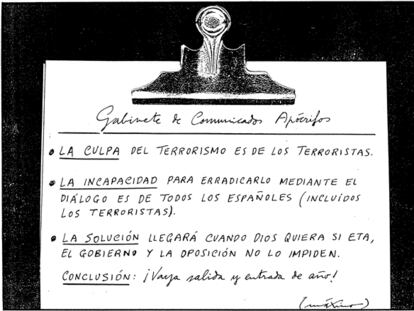 Gabinete de Comunicados Apócrifos
• LA CULPA DEL TERRORISMO ES DE LOS TERRORISTAS.
• LA INCAPACIDAD PARA ERRADICARLO MEDIANTE EL
DIÁLOGO ES DE TODOS LOS ESPAÑOLES (INCLUÍDOS
LOS TERRORISTAS).
• LA SOLUCIÓN LLEGARÁ CUANDO DIOS QUIERA SI ETA,
EL GOBIERNO Y LA OPOSICIÓN NO LO IMPIDEN.
CONCLUSIÓN: ¡Vaya salida y entrada de año!
(máximo)